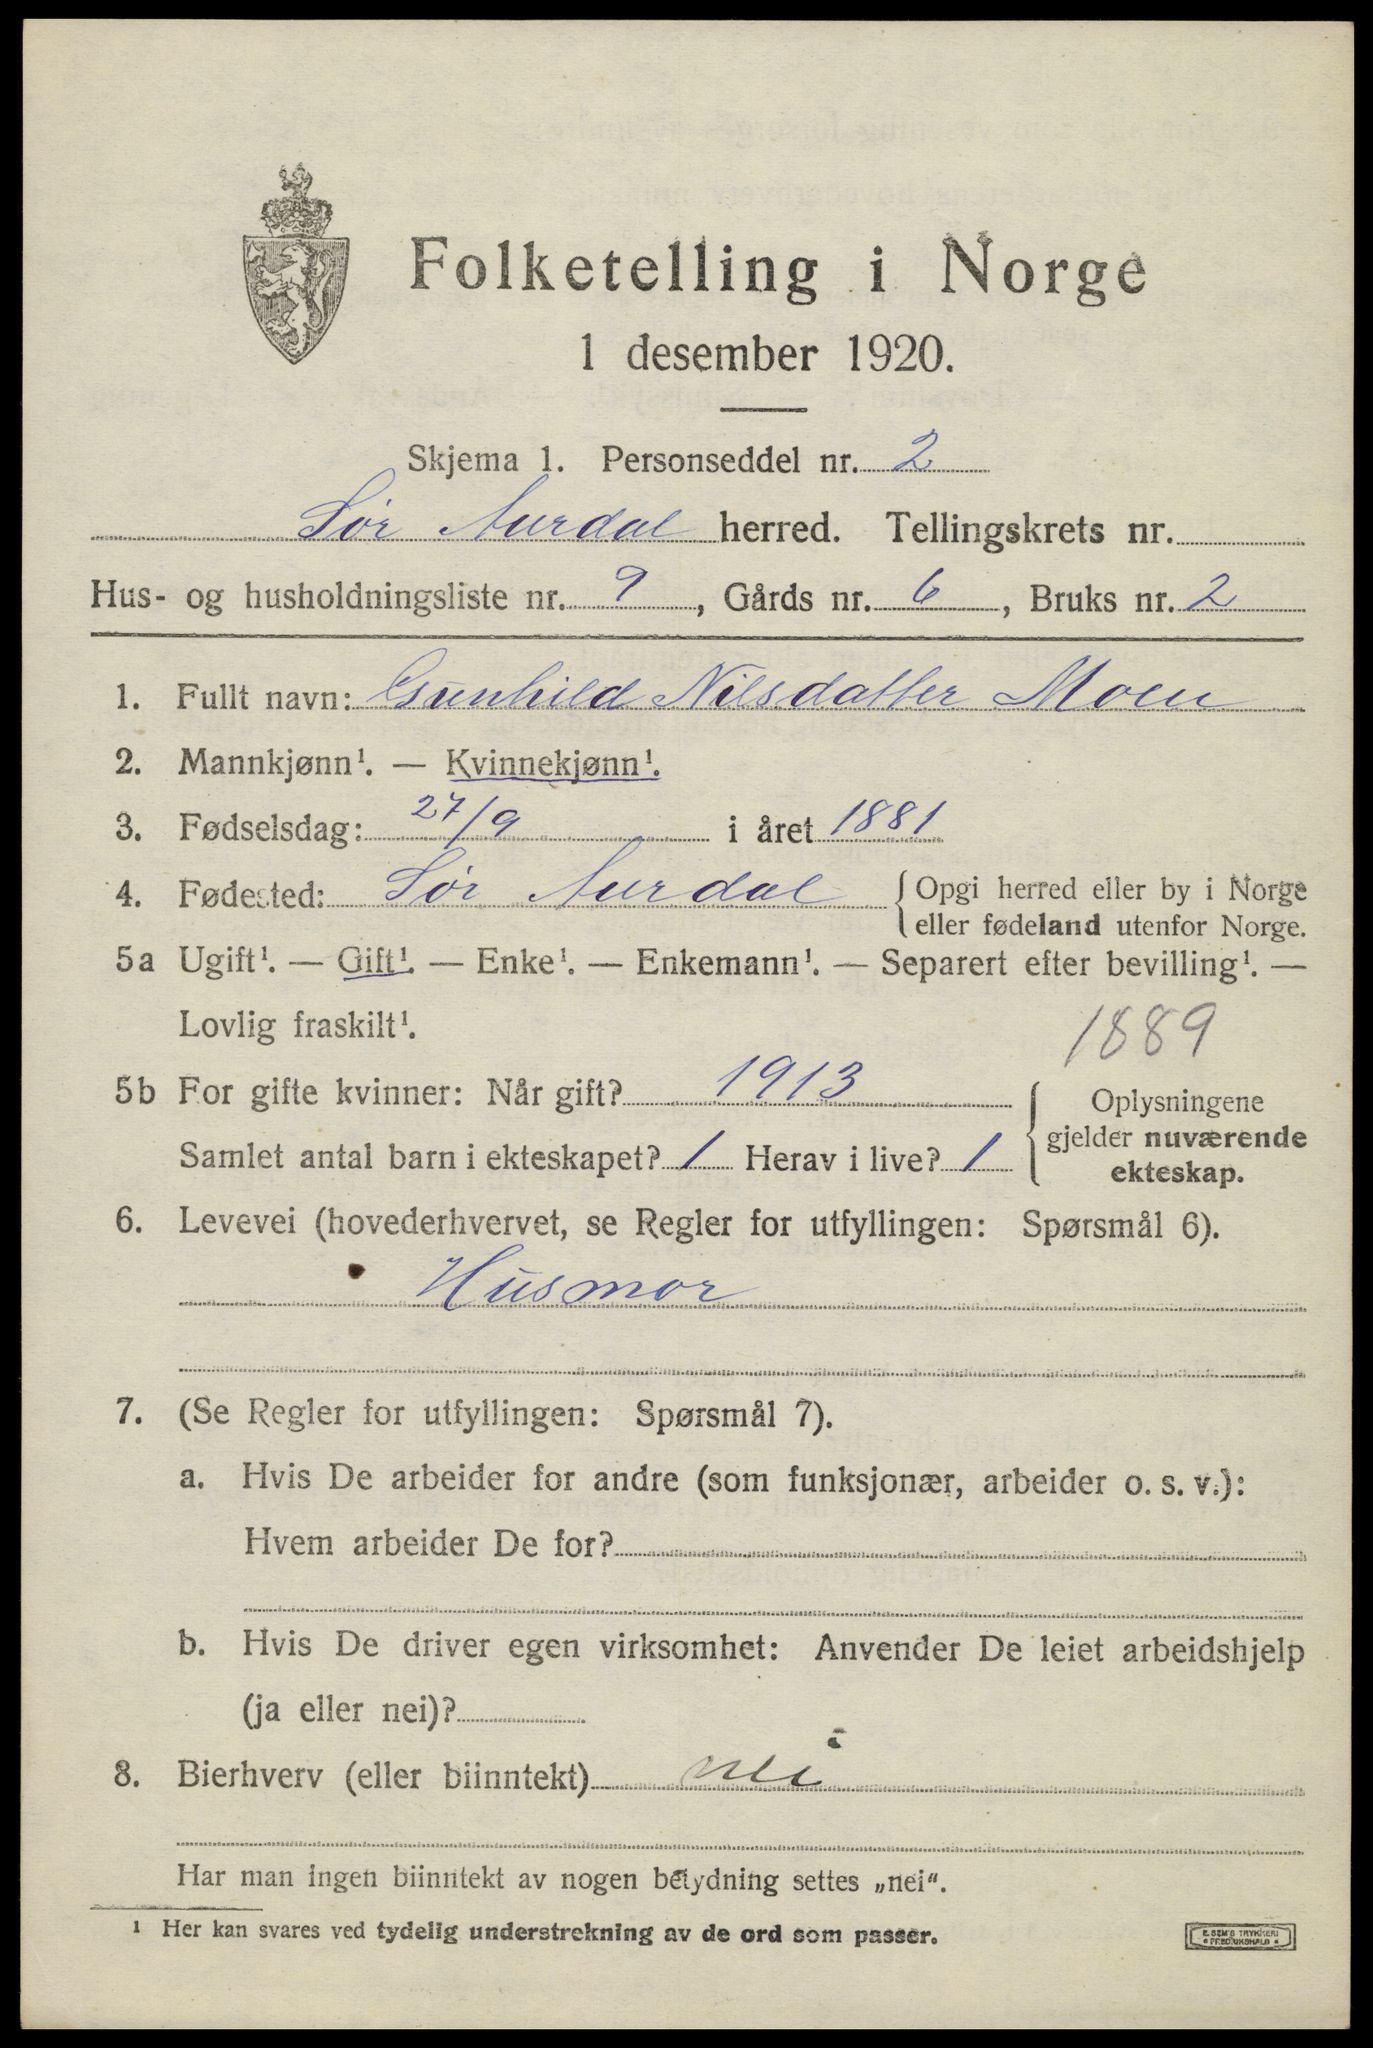 Folketelling i Norge
1 desember 1920.
Skjema 1. Personseddel nr. 2
Sør Aurdal herred. Tellingskrets nr.
Hus- og husholdningsliste nr. 9, Gårds nr. 6, Bruks nr. 2
1. Fullt navn: Gunhild Nilsdatter Moen
2. Mannkjønn¹. — Kvinnekjønn¹.
3. Fødselsdag: 27/9 i året 1881
4. Fødested: Sør Aurdal { Opgi herred eller by i Norge
eller fødeland utenfor Norge.
5a Ugift¹. — Gift¹. — Enke¹. — Enkemann¹. — Separert efter bevilling¹. —
Lovlig fraskilt¹.
1889
5b For gifte kvinner: Når gift? 1913
Samlet antal barn i ekteskapet? 1 Herav i live? 1
Oplysningene
gjelder nuværende
ekteskap.
6. Levevei (hovederhvervet, se Regler for utfyllingen: Spørsmål 6).
Husmor
7. (Se Regler for utfyllingen: Spørsmål 7).
a. Hvis De arbeider for andre (som funksjonær, arbeider o. s. v.):
Hvem arbeider De for?
b. Hvis De driver egen virksomhet: Anvender De leiet arbeidshjelp
(ja eller nei)?
8. Bierhverv (eller biinntekt) nei
Har man ingen biinntekt av nogen betydning settes „nei“.
¹ Her kan svares ved tydelig understrekning av de ord som passer.
E. SEM'S TRYKKERI
FREDRIKSHALD